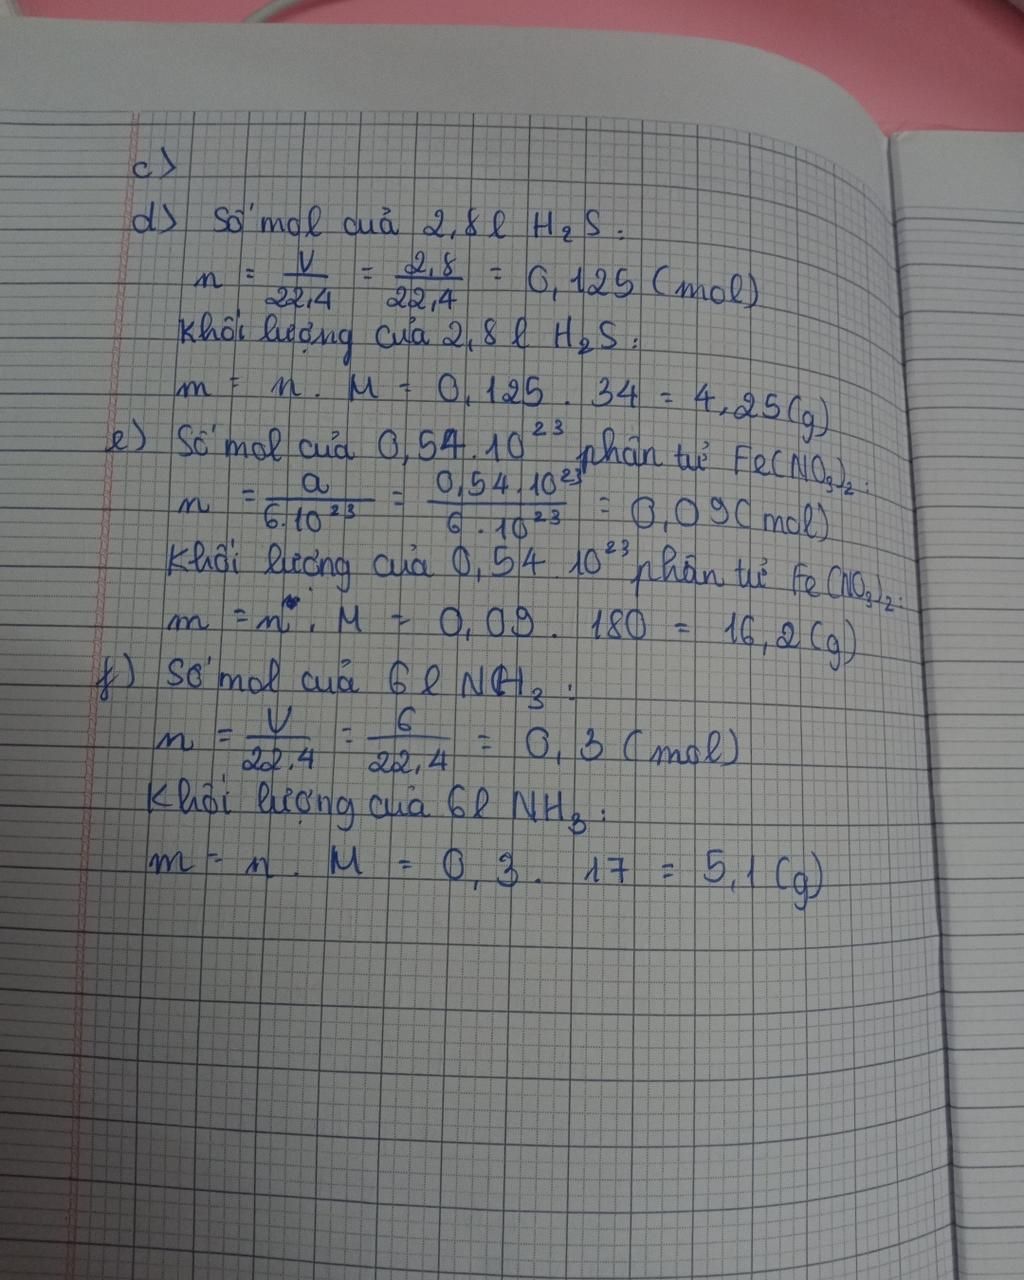 c)
d) Số mol quả 2,8 l H₂S:
n = V/22,4 = 2,8/22,4 = 0,125 (mol)
Khối lượng của 2,8 l H₂S:
m = n . M = 0,125 . 34 = 4,25(g)
e) Số mol của 0,54.10²³ phân tử Fe(NO₃)₂:
n = a/6.10²³ = 0,54.10²³/6.10²³ = 0,09(mol)
Khối lượng của 0,54.10²³ phân tử Fe(NO₃)₂:
m = n . M = 0,09 . 180 = 16,2(g)
f) Số mol của 6 l NH₃:
n = V/22,4 = 6/22,4 = 0,3 (mol)
Khối lượng của 6l NH₃:
m = n . M = 0,3 . 17 = 5,1 (g)